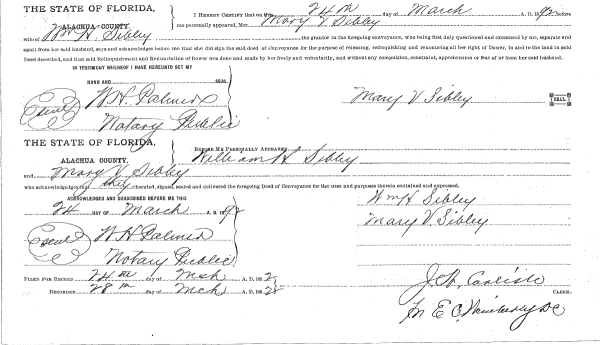 THE STATE OF FLORIDA,
ALACHUA COUNTY.
I HEREBY CERTIFY that on this 24th day of March A. D. 1892 before
me personally appeared, Mrs. Mary V Sibley
wife of Wm H. Sibley the grantor in the foregoing conveyance, who being first duly questioned and examined by me, separate and
apart from her said husband, says and acknowledges before me that she did sign the said deed of Conveyance for the purpose of releasing, relinquishing and renouncing all her right of Dower, in and to the land in said
Deed described, and that said Relinquishment and Renunciation of dower was done and made by her freely and voluntarily, and without any compulsion, constraint, apprehension or fear of or from her said husband.
IN TESTIMONY WHEREOF I HAVE HEREUNTO SET MY
HAND AND SEAL.
Seal W. H. Palmer
Notary Public
Mary V Sibley SEAL.
THE STATE OF FLORIDA,
ALACHUA COUNTY.
BEFORE ME PERSONALLY APPEARED William H Sibley
and Mary V Sibley
who acknowledged that they executed, signed, sealed and delivered the foregoing Deed of Conveyance for the uses and purposes therein contained and expressed.
ACKNOWLEDGED AND SUBSCRIBED BEFORE ME THIS
24 DAY OF March A. D. 1892
Wm H Sibley
Mary V. Sibley
Seal W H Palmer
Notary Public
FILED FOR RECORD 24th day of Mch A. D. 1892
RECORDED 28th day of Mch A. D. 1892
J. A. Carlisle
CLERK.
E C DC